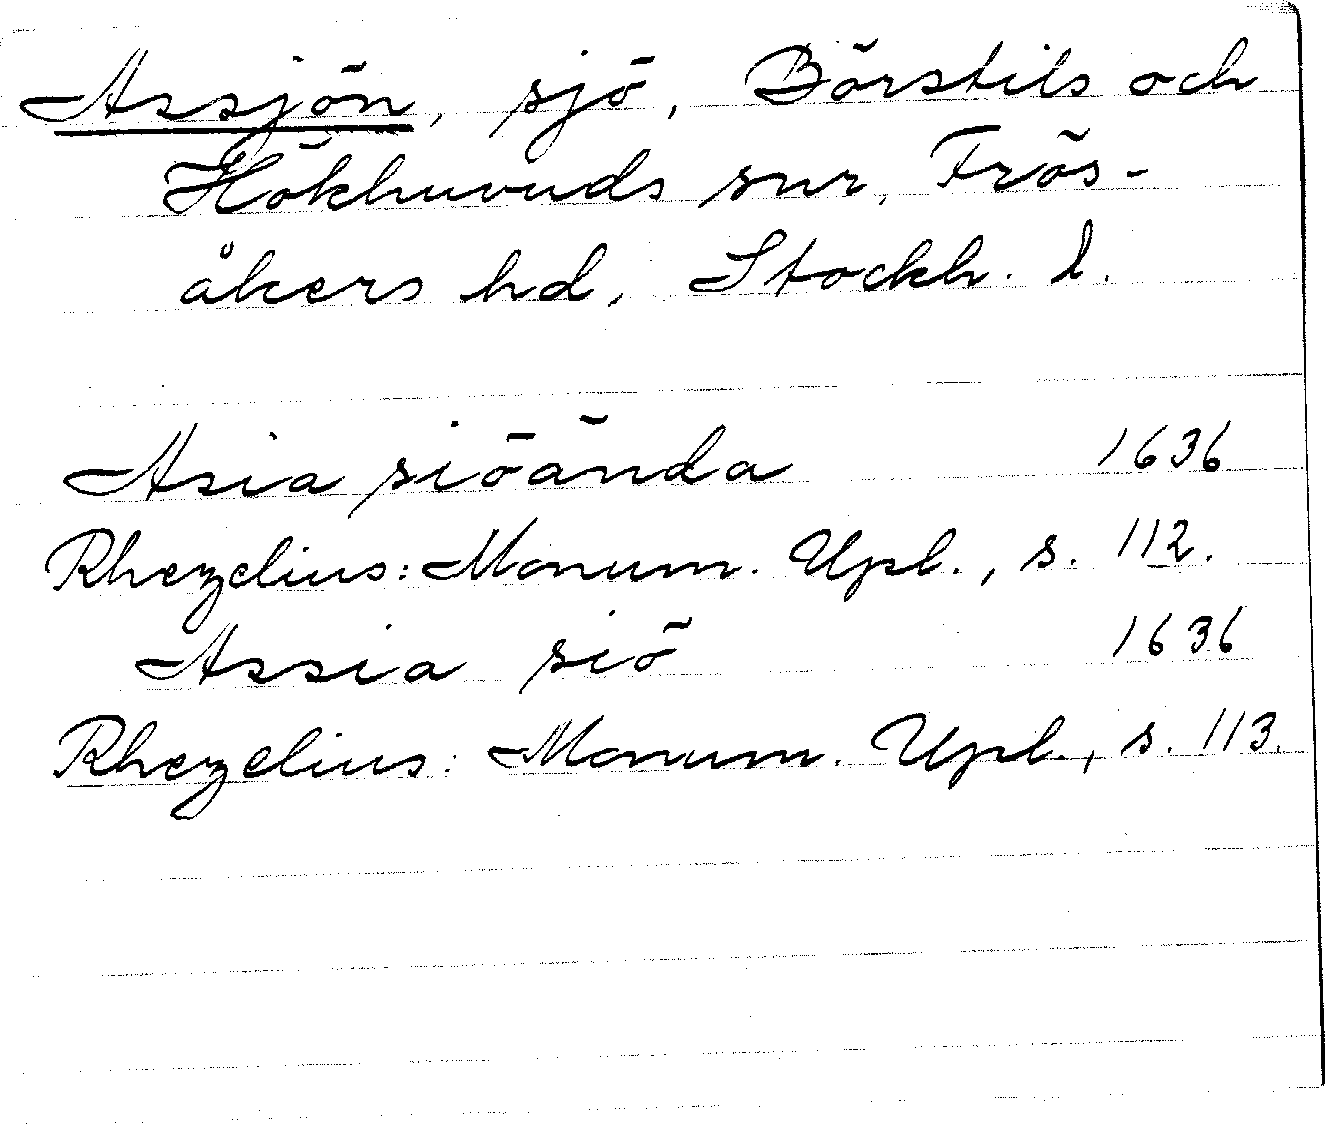 Assjön, sjö, Börstils och
Hökhuvuds snr, Frös-
åkers hd, Stockh. l.
Asia siöända 1636
Rhezelius: Monum. Upl., s. 112.
Assia siö 1636
Rhezelius: Monum. Upl., s. 113.